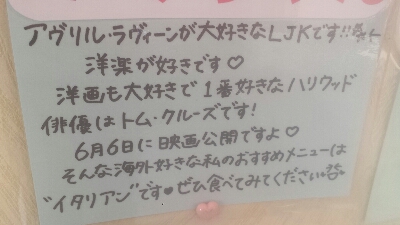 アヴリル・ラヴィーンが大好きなLJKです!!
洋楽が好きです♡
洋画も大好きで1番好きなハリウッド
俳優はトム・クルーズです!
6月6日に映画公開ですよ♡
そんな海外好きな私のおすすめメニューは
"イタリアン"です♥ぜひ食べてみてください